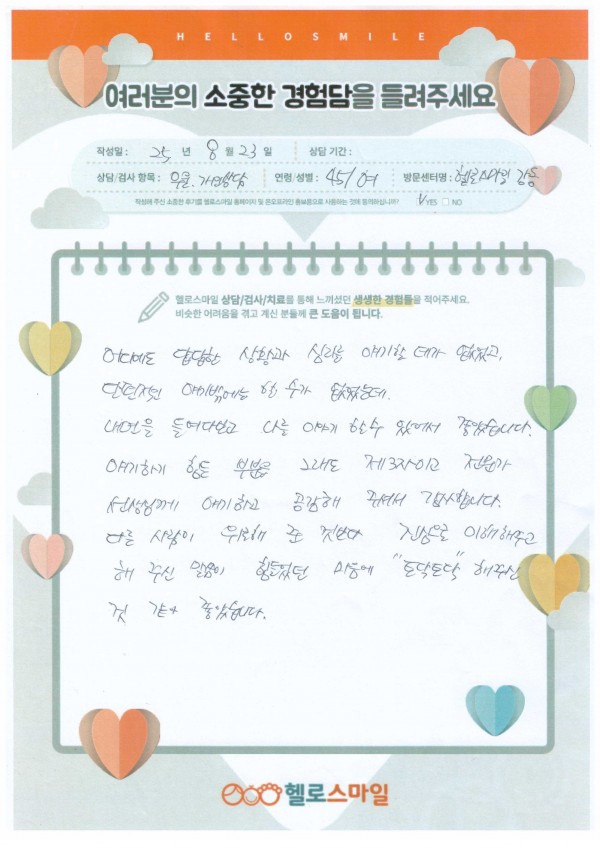 HELLOSMILE
여러분의 소중한 경험담을 들려주세요
작성일 : 25 년 8 월 23 일 상담 기간 :
상담/검사 항목 : 우울. 개인상담 연령/성별 : 45/여 방문센터명 : 헬로스마일 강동
작성해 주신 소중한 후기를 헬로스마일 홈페이지 및 온오프라인 홍보용으로 사용하는 것에 동의하십니까? YES NO
헬로스마일 상담/검사/치료를 통해 느끼셨던 생생한 경험들을 적어주세요.
비슷한 어려움을 겪고 계신 분들께 큰 도움이 됩니다.
어디에도 답답한 상황과 심리를 얘기할 데가 없었고,
단편적인 얘기밖에는 할 수가 없었는데.
내면을 들여다보고 나를 이야기 할수 있어서 좋았습니다.
얘기하기 힘든 부분을 그래도 제3자이고 전문가
선생님께 얘기하고 공감해 주셔서 감사합니다.
다른 사람이 위로해 준 것보다 진심으로 이해해주고
해 주신 말씀이 힘들었던 마음에 "토닥토닥" 해주신
것 같아 좋았습니다.
헬로스마일